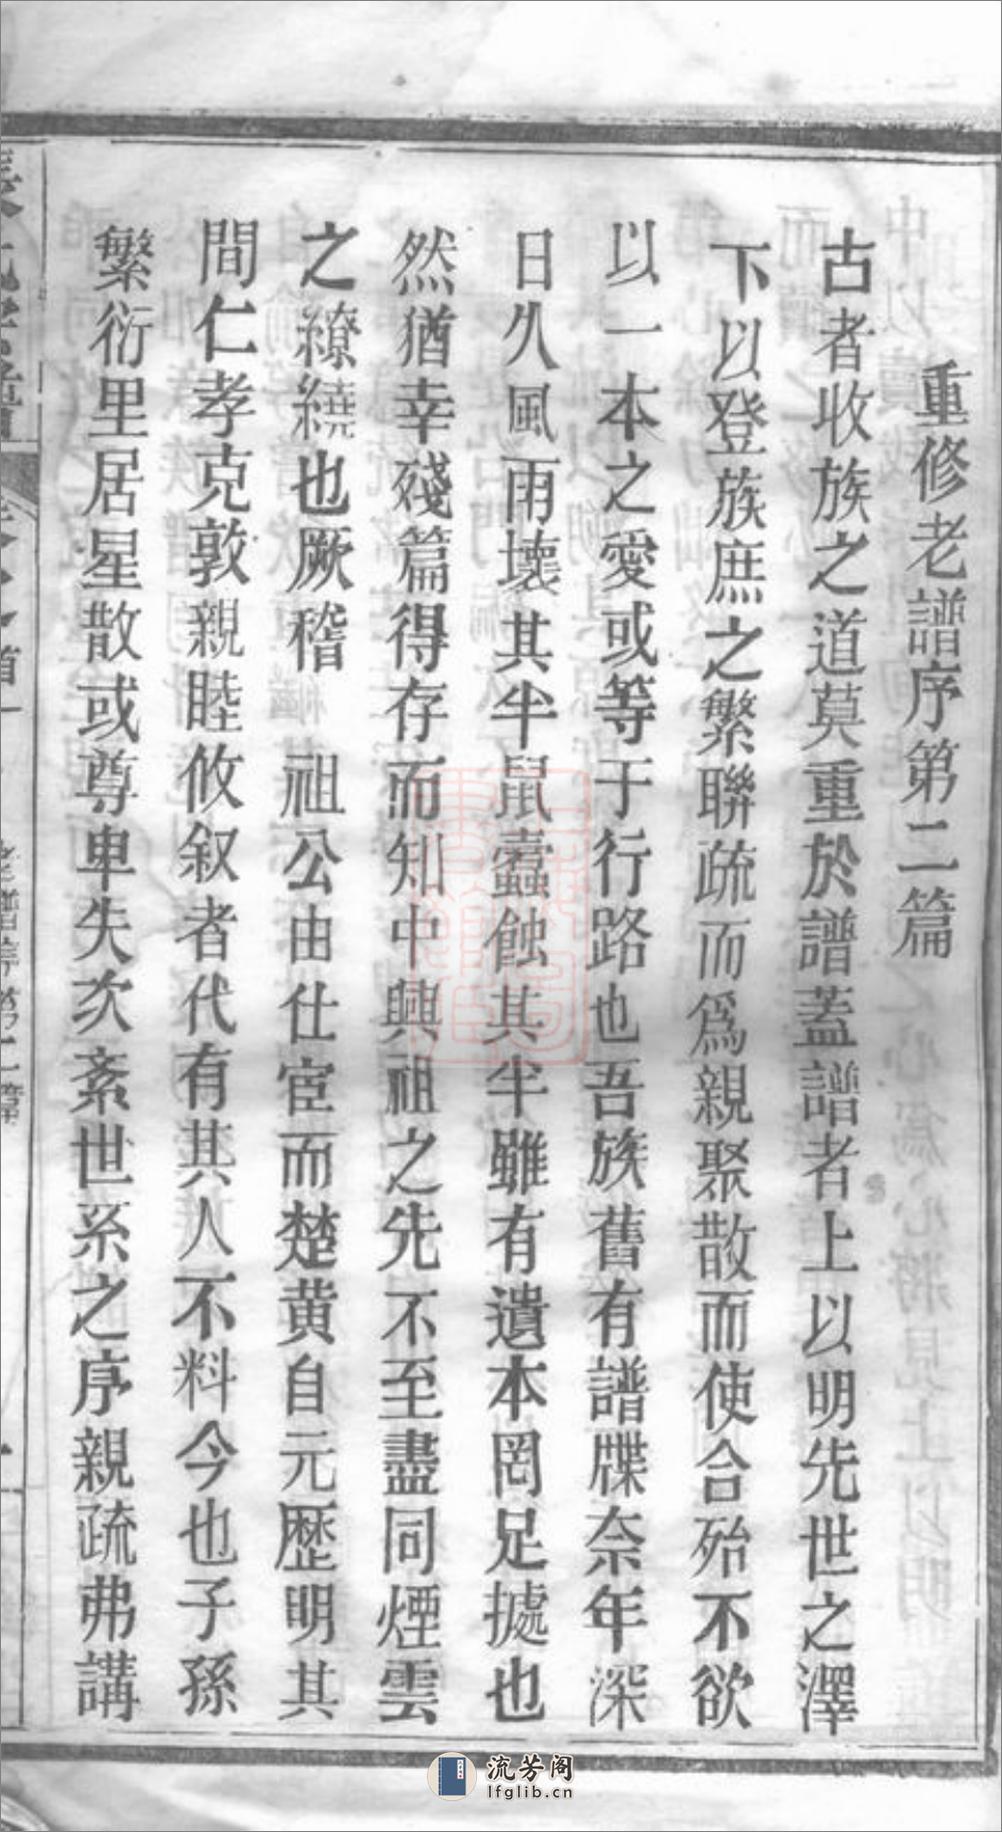 重修老譜序第二篇
古者收族之道莫重於譜蓋譜者上以明先世之澤
下以登族庶之繁聯疏而爲親聚散而使合殆不欲
以一本之愛或等于行路也吾族舊有譜牒奈年深
日久風雨壞其半鼠蠹蝕其半雖有遺本罔足據也
然猶幸殘篇得存而知中興祖之先不至盡同煙雲
之繚繞也厥稽　祖公由仕宦而楚黃自元歷明其
間仁孝克敦親睦攸叙者代有其人不料今也子孫
繁衍里居星散或尊卑失次紊世系之序親疏弗講
老譜序第二篇
流芳阁
lfglib.cn